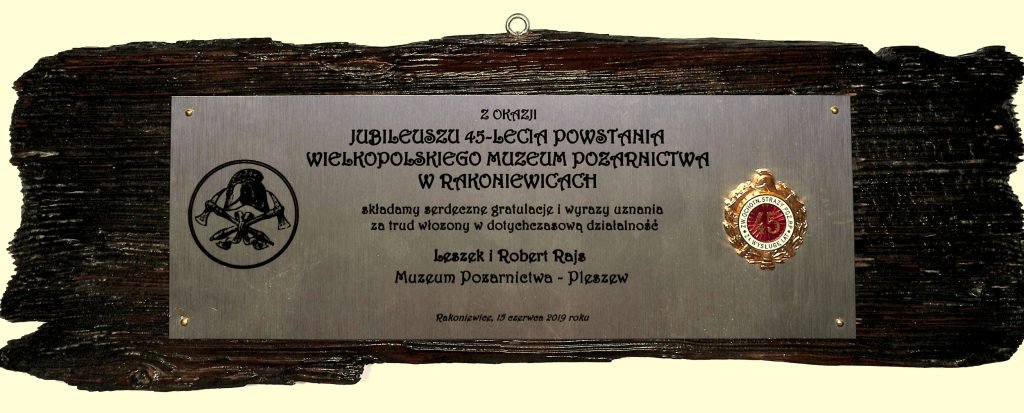 Z OKAZJI
JUBILEUSZU 45-LECIA POWSTANIA
WIELKOPOLSKIEGO MUZEUM POŻARNICTWA
W RAKONIEWICACH
składamy serdeczne gratulacje i wyrazy uznania
za trud włożony w dotychczasową działalność
Leszek i Robert Rajs
Muzeum Pożarnictwa - Pleszew
Rakoniewice, 15 czerwca 2019 roku
ZW. OCHOTN. STRAŻY POŻ. RP
45
ZA WYSŁUGĘ LAT